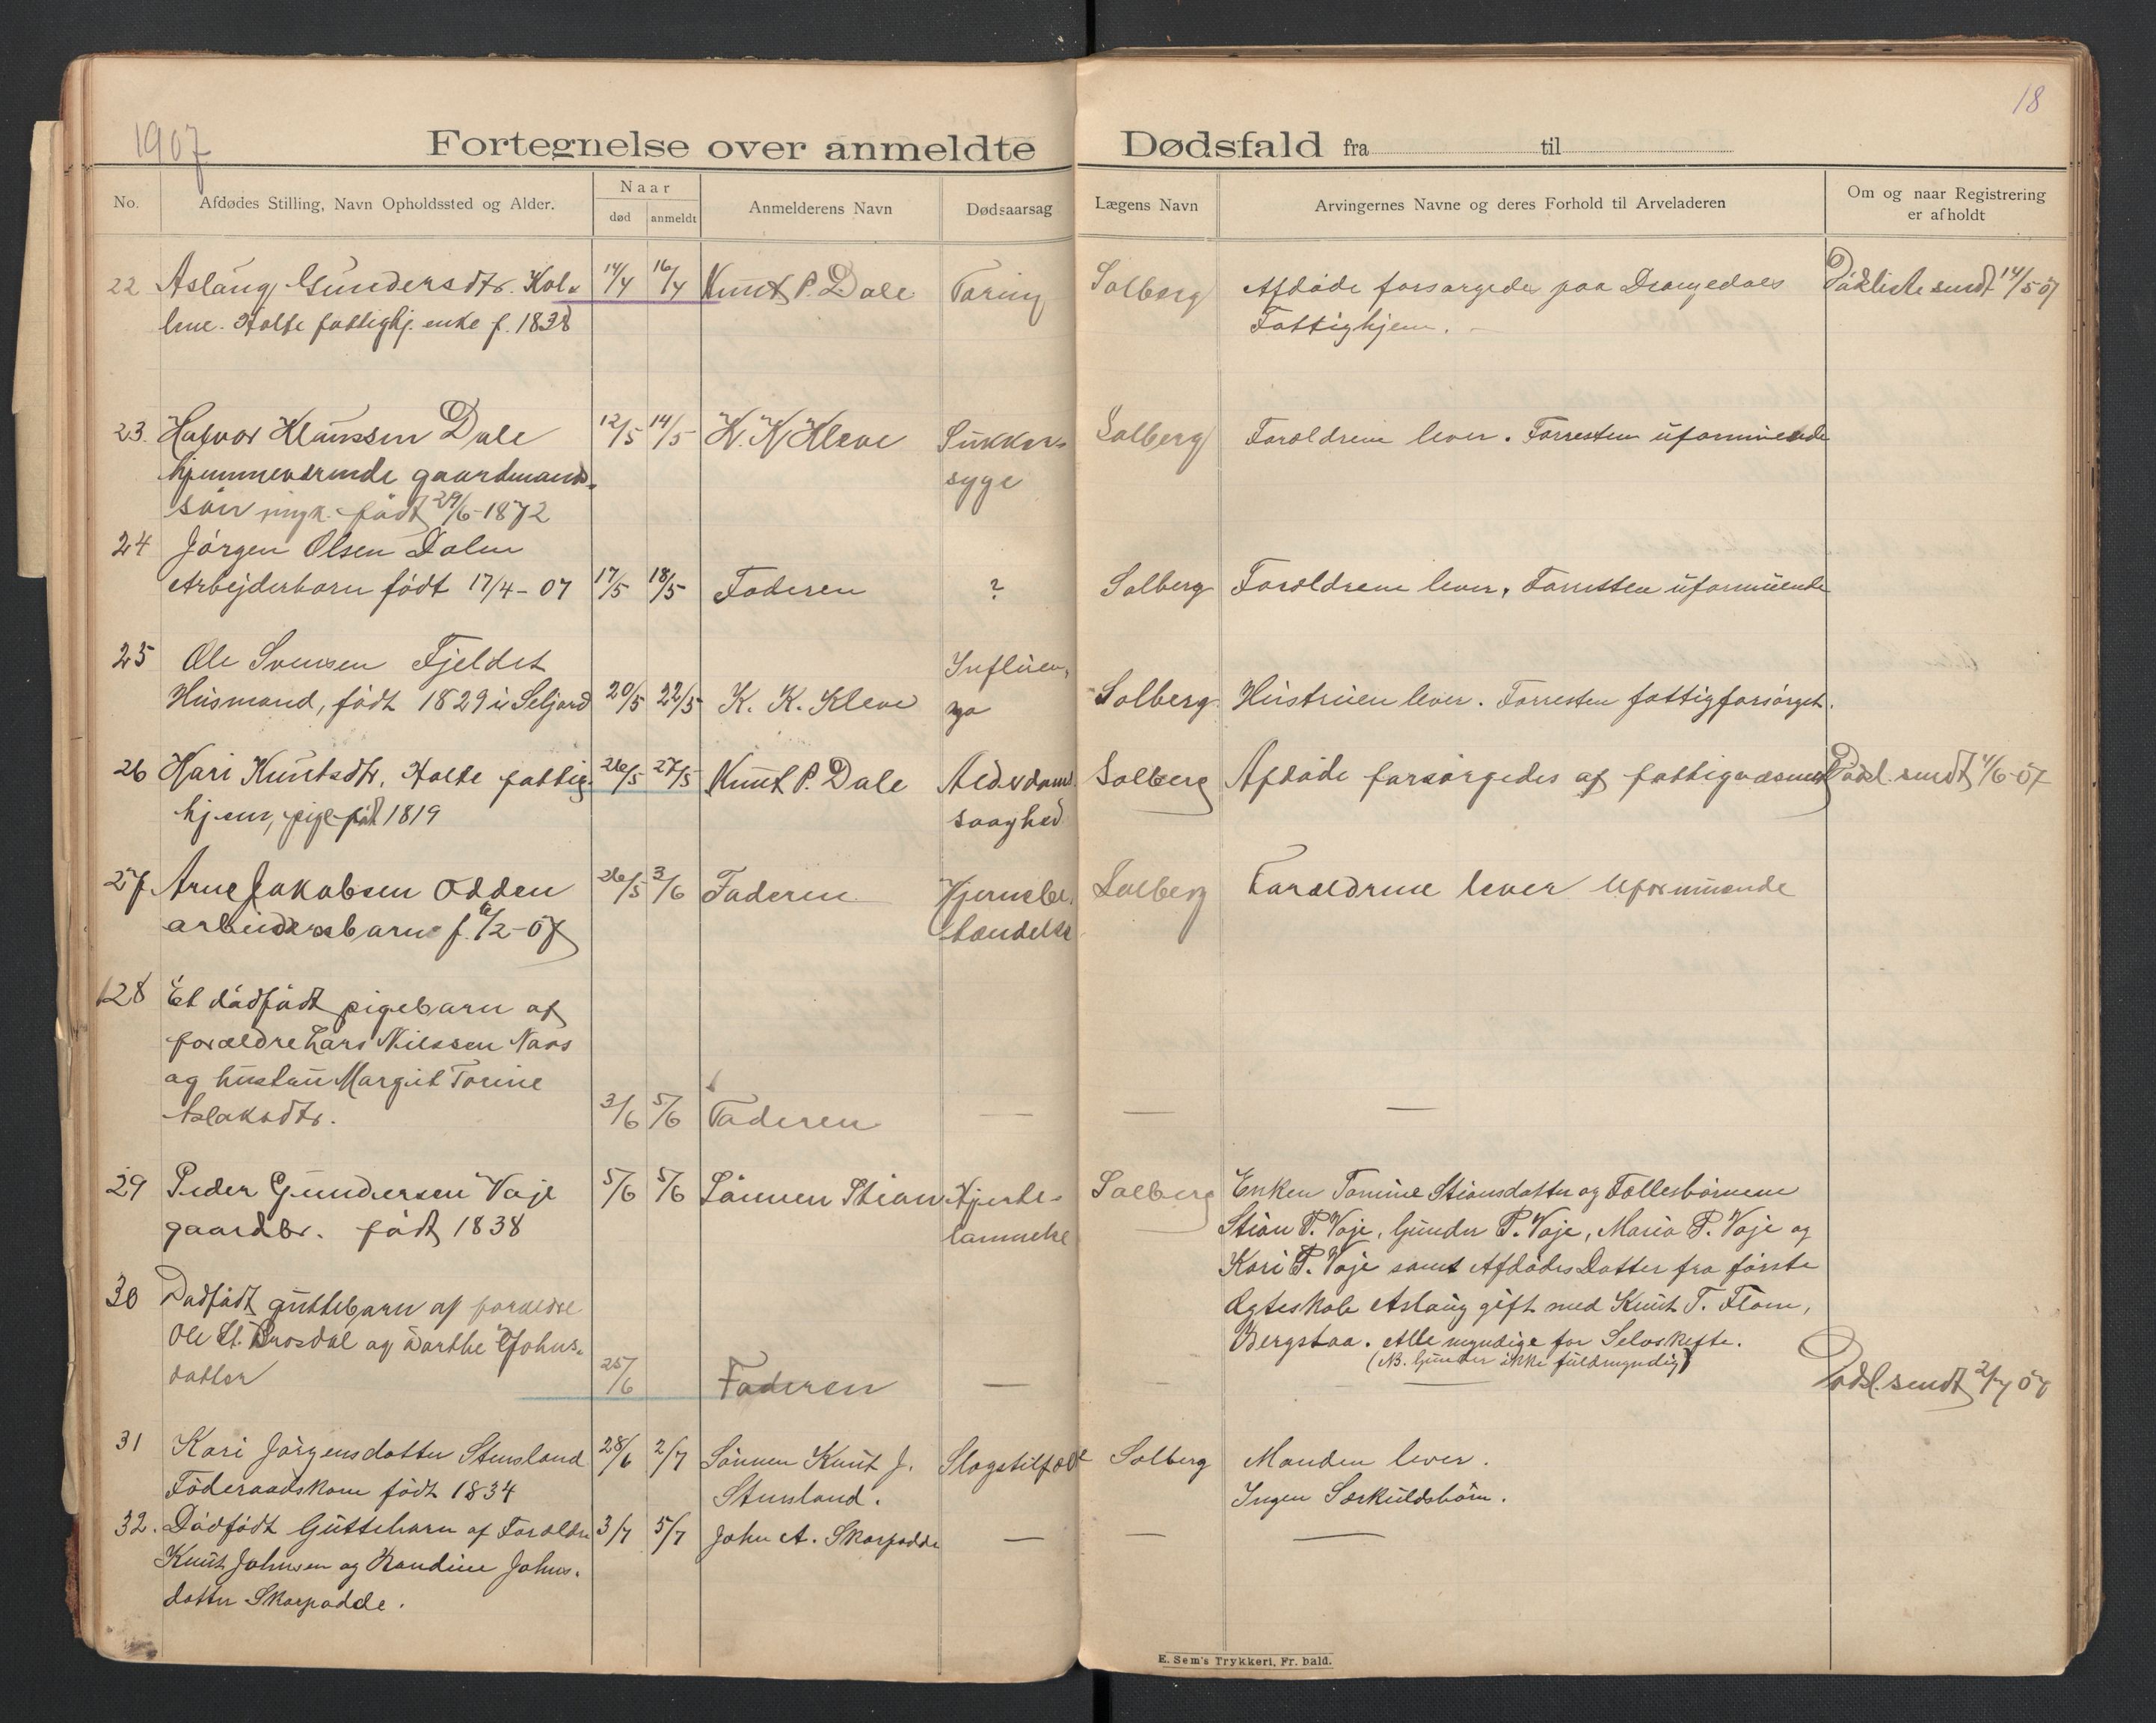 1907
18
Fortegnelse over anmeldte Dødsfald fra til
No.
Afdødes Stilling, Navn Opholdssted og Alder.
Naar
død
anmeldt
Anmelderens Navn
Dødsaarsag
Lægens Navn
Arvingernes Navne og deres Forhold til Arveladeren
Om og naar Registrering
er afholdt
22 Aslaug Gundersdtr. 14/4 16/4 Knut P. Dale Tæring Solberg Afdøde forsørgedes paa Drangedals Dødsliste sendt 14/5 07
Holte fattighj. enke f. 1838 Fattighjem.
23. Halvor Klaussen Dale 12/5 14/5 K. K Kleve Sukker- Solberg Forældrene lever. Forresten uformuende
hjemmeværende gaardmands- syge
søn født 29/6-1872
24 Jørgen Olsen Dalen
Arbejderbarn født 17/4-07 17/5 18/5 Faderen ? Solberg Forældrene lever. Forresten uformuende
25 Ole Svensen Fjeldet Influen-
Husmand, født 1829 i Seljord 20/5 22/5 K. K. Kleve za Solberg Hustruen lever. Forresten fattigforsørget.
26 Kari Knutsdtr. Holte fattig- 26/5 27/5 Knut P. Dale Alderdoms Solberg Afdøde forsørgedes af fattigvæsenet Dødsl. sendt 1/6-07
hjem, pige født 1819 svaghed
27 Arne Jakobsen Odden 26/5 3/6 Faderen Hjernebe- Solberg Forældrene lever uformuende
arbeidersbarn f. /2-07 tændelse
28 Et dødfødt pigebarn af
forældre Lars Nilssen Næs
og hustru Margit Torine
Aslaksdtr. 3/6 5/6 Faderen — — —
29 Peder Gundersen Voje 5/6 5/6 Sønnen Stian Hjerte- Solberg Enken Tomine Stiansdatter og Fællesbørnene
gaardbr. født 1838 lammelse Stian P. Voje, Gunder P. Voje, Maria P. Voje og
Kari P. Voje samt Afdødes Datter fra første
Ægteskab Aslaug gift med Knut T. Flom,
Bergstaa. Alle myndige for Selvskifte.
(NB. Gunder ikke fuldmyndig)
30 Dødfødt guttebarn af forældre
Ole St. Brosdal og Dorthe Johns-
datter 25/6 Faderen — — Dødsl. sendt 2/7 07
31 Kari Jørgensdatter Stensland 28/6 2/7 Sønnen Knut J. Slagtilfælde Solberg Manden lever.
Føderaadskone født 1834 Stensland. Ingen Særkuldsbørn.
32. Dødfødt Guttebarn af Forældre 3/7 5/7 John A. Skarpodde — — —
Knut Johnsen og Johns-
datter Skarpodde.
E. Sem's Trykkeri, Fr. hald.